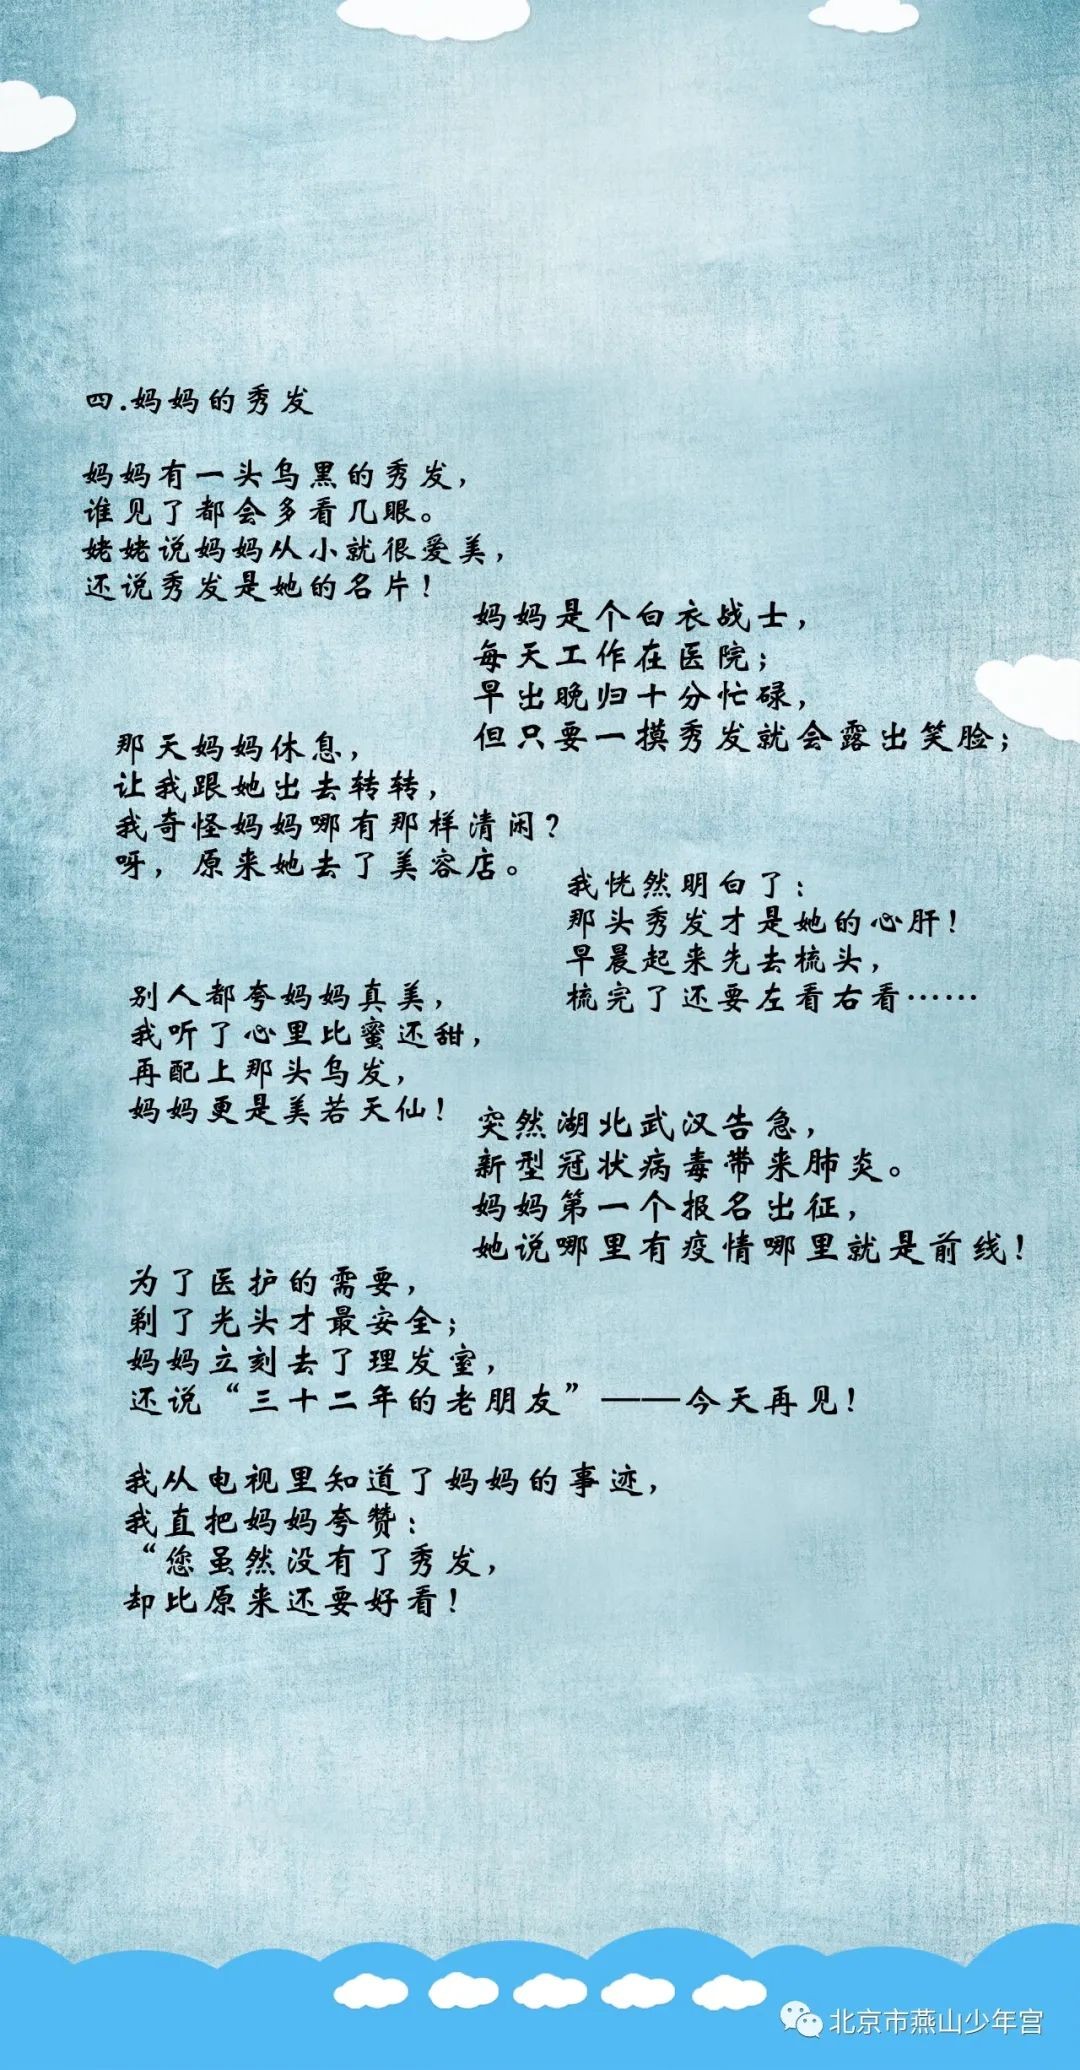 四.妈妈的秀发
妈妈有一头乌黑的秀发，
谁见了都会多看几眼。
姥姥说妈妈从小就很爱美，
还说秀发是她的名片！
妈妈是个白衣战士，
每天工作在医院；
早出晚归十分忙碌，
但只要一摸秀发就会露出笑脸；
那天妈妈休息，
让我跟她出去转转，
我奇怪妈妈哪有那样清闲？
呀，原来她去了美容店。
我恍然明白了：
那头秀发才是她的心肝！
早晨起来先去梳头，
梳完了还要左看右看……
别人都夸妈妈真美，
我听了心里比蜜还甜，
再配上那头乌发，
妈妈更是美若天仙！
突然湖北武汉告急，
新型冠状病毒带来肺炎。
妈妈第一个报名出征，
她说哪里有疫情哪里就是前线！
为了医护的需要，
剃了光头才最安全；
妈妈立刻去了理发室，
还说“三十二年的老朋友”——今天再见！
我从电视里知道了妈妈的事迹，
我直把妈妈夸赞：
“您虽然没有了秀发，
却比原来还要好看！
北京市燕山少年宫